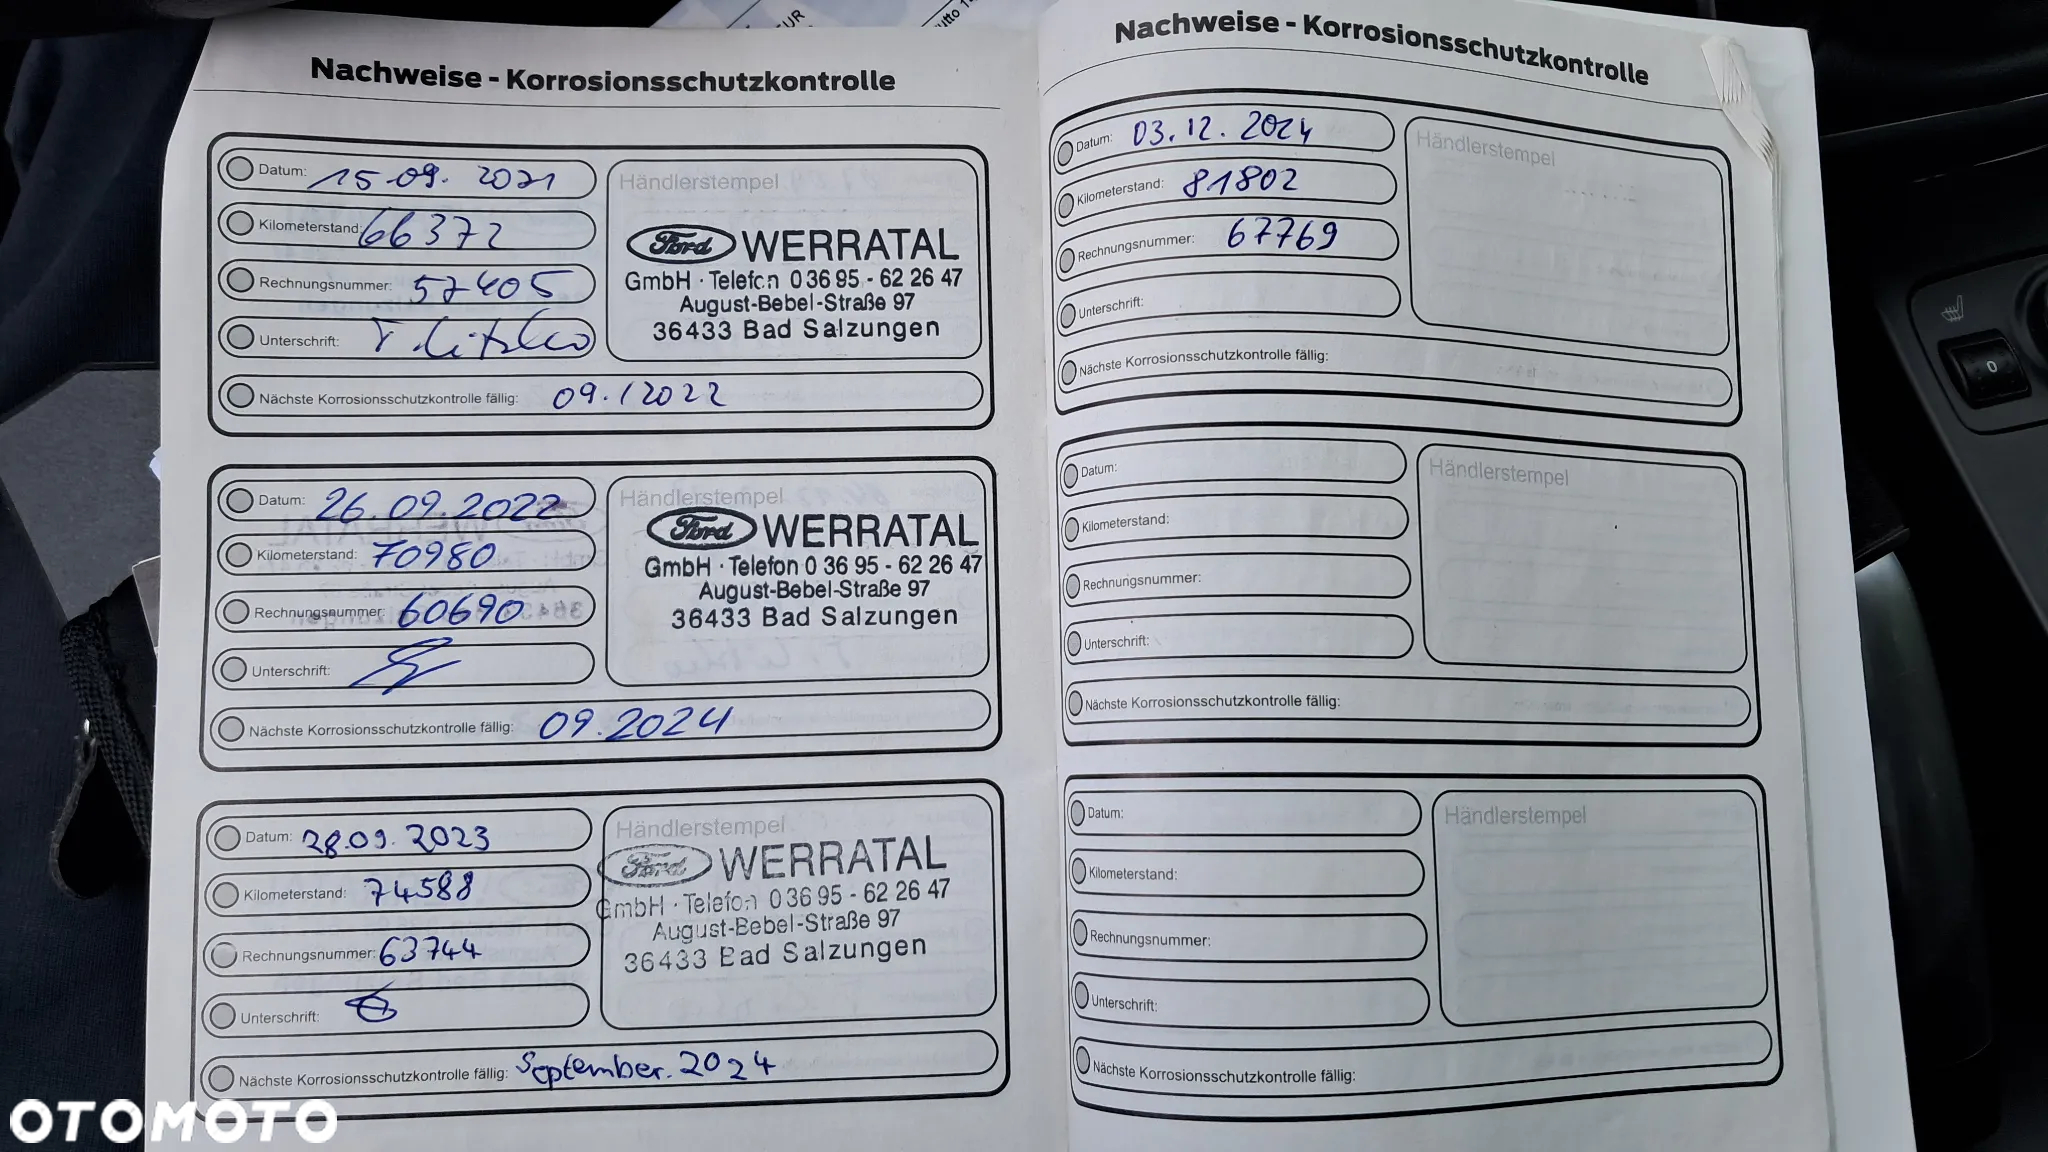 Nachweise - Korrosionsschutzkontrolle
Datum: 15.09.2021
Kilometerstand: 66372
Rechnungsnummer: 57405
Unterschrift:
Nächste Korrosionsschutzkontrolle fällig: 09./2022
Händlerstempel
Ford WERRATAL
GmbH · Telefon 0 36 95 - 62 26 47
August-Bebel-Straße 97
36433 Bad Salzungen
Datum: 26.09.2022
Kilometerstand: 70980
Rechnungsnummer: 60690
Unterschrift:
Nächste Korrosionsschutzkontrolle fällig: 09.2024
Händlerstempel
Ford WERRATAL
GmbH · Telefon 0 36 95 - 62 26 47
August-Bebel-Straße 97
36433 Bad Salzungen
Datum: 28.09.2023
Kilometerstand: 74588
Rechnungsnummer: 63744
Unterschrift:
Nächste Korrosionsschutzkontrolle fällig: September.2024
Händlerstempel
Ford WERRATAL
GmbH · Telefon 0 36 95 - 62 26 47
August-Bebel-Straße 97
36433 Bad Salzungen
Nachweise - Korrosionsschutzkontrolle
Datum: 03.12.2024
Kilometerstand: 81802
Rechnungsnummer: 67769
Unterschrift:
Nächste Korrosionsschutzkontrolle fällig:
Händlerstempel
Datum:
Kilometerstand:
Rechnungsnummer:
Unterschrift:
Nächste Korrosionsschutzkontrolle fällig:
Händlerstempel
Datum:
Kilometerstand:
Rechnungsnummer:
Unterschrift:
Nächste Korrosionsschutzkontrolle fällig:
Händlerstempel
0
OTOMOTO